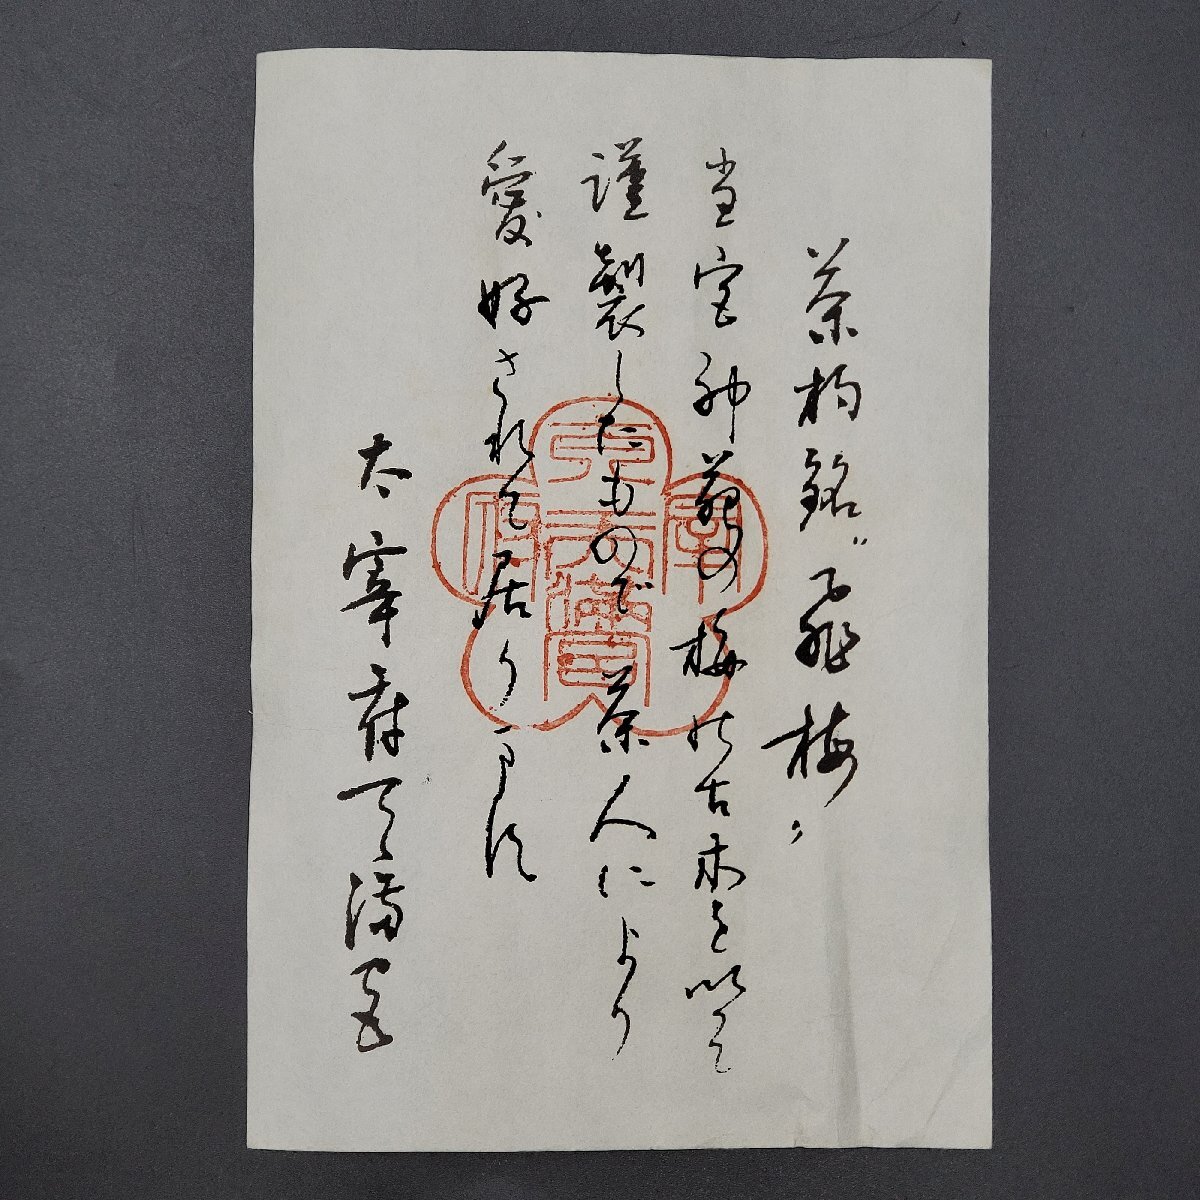 茶杓銘“飛梅”
当宮神苑の梅の古木を以って
謹製したもので茶人により
愛好されて居ります
太宰府天満宮
太宰府天満宮